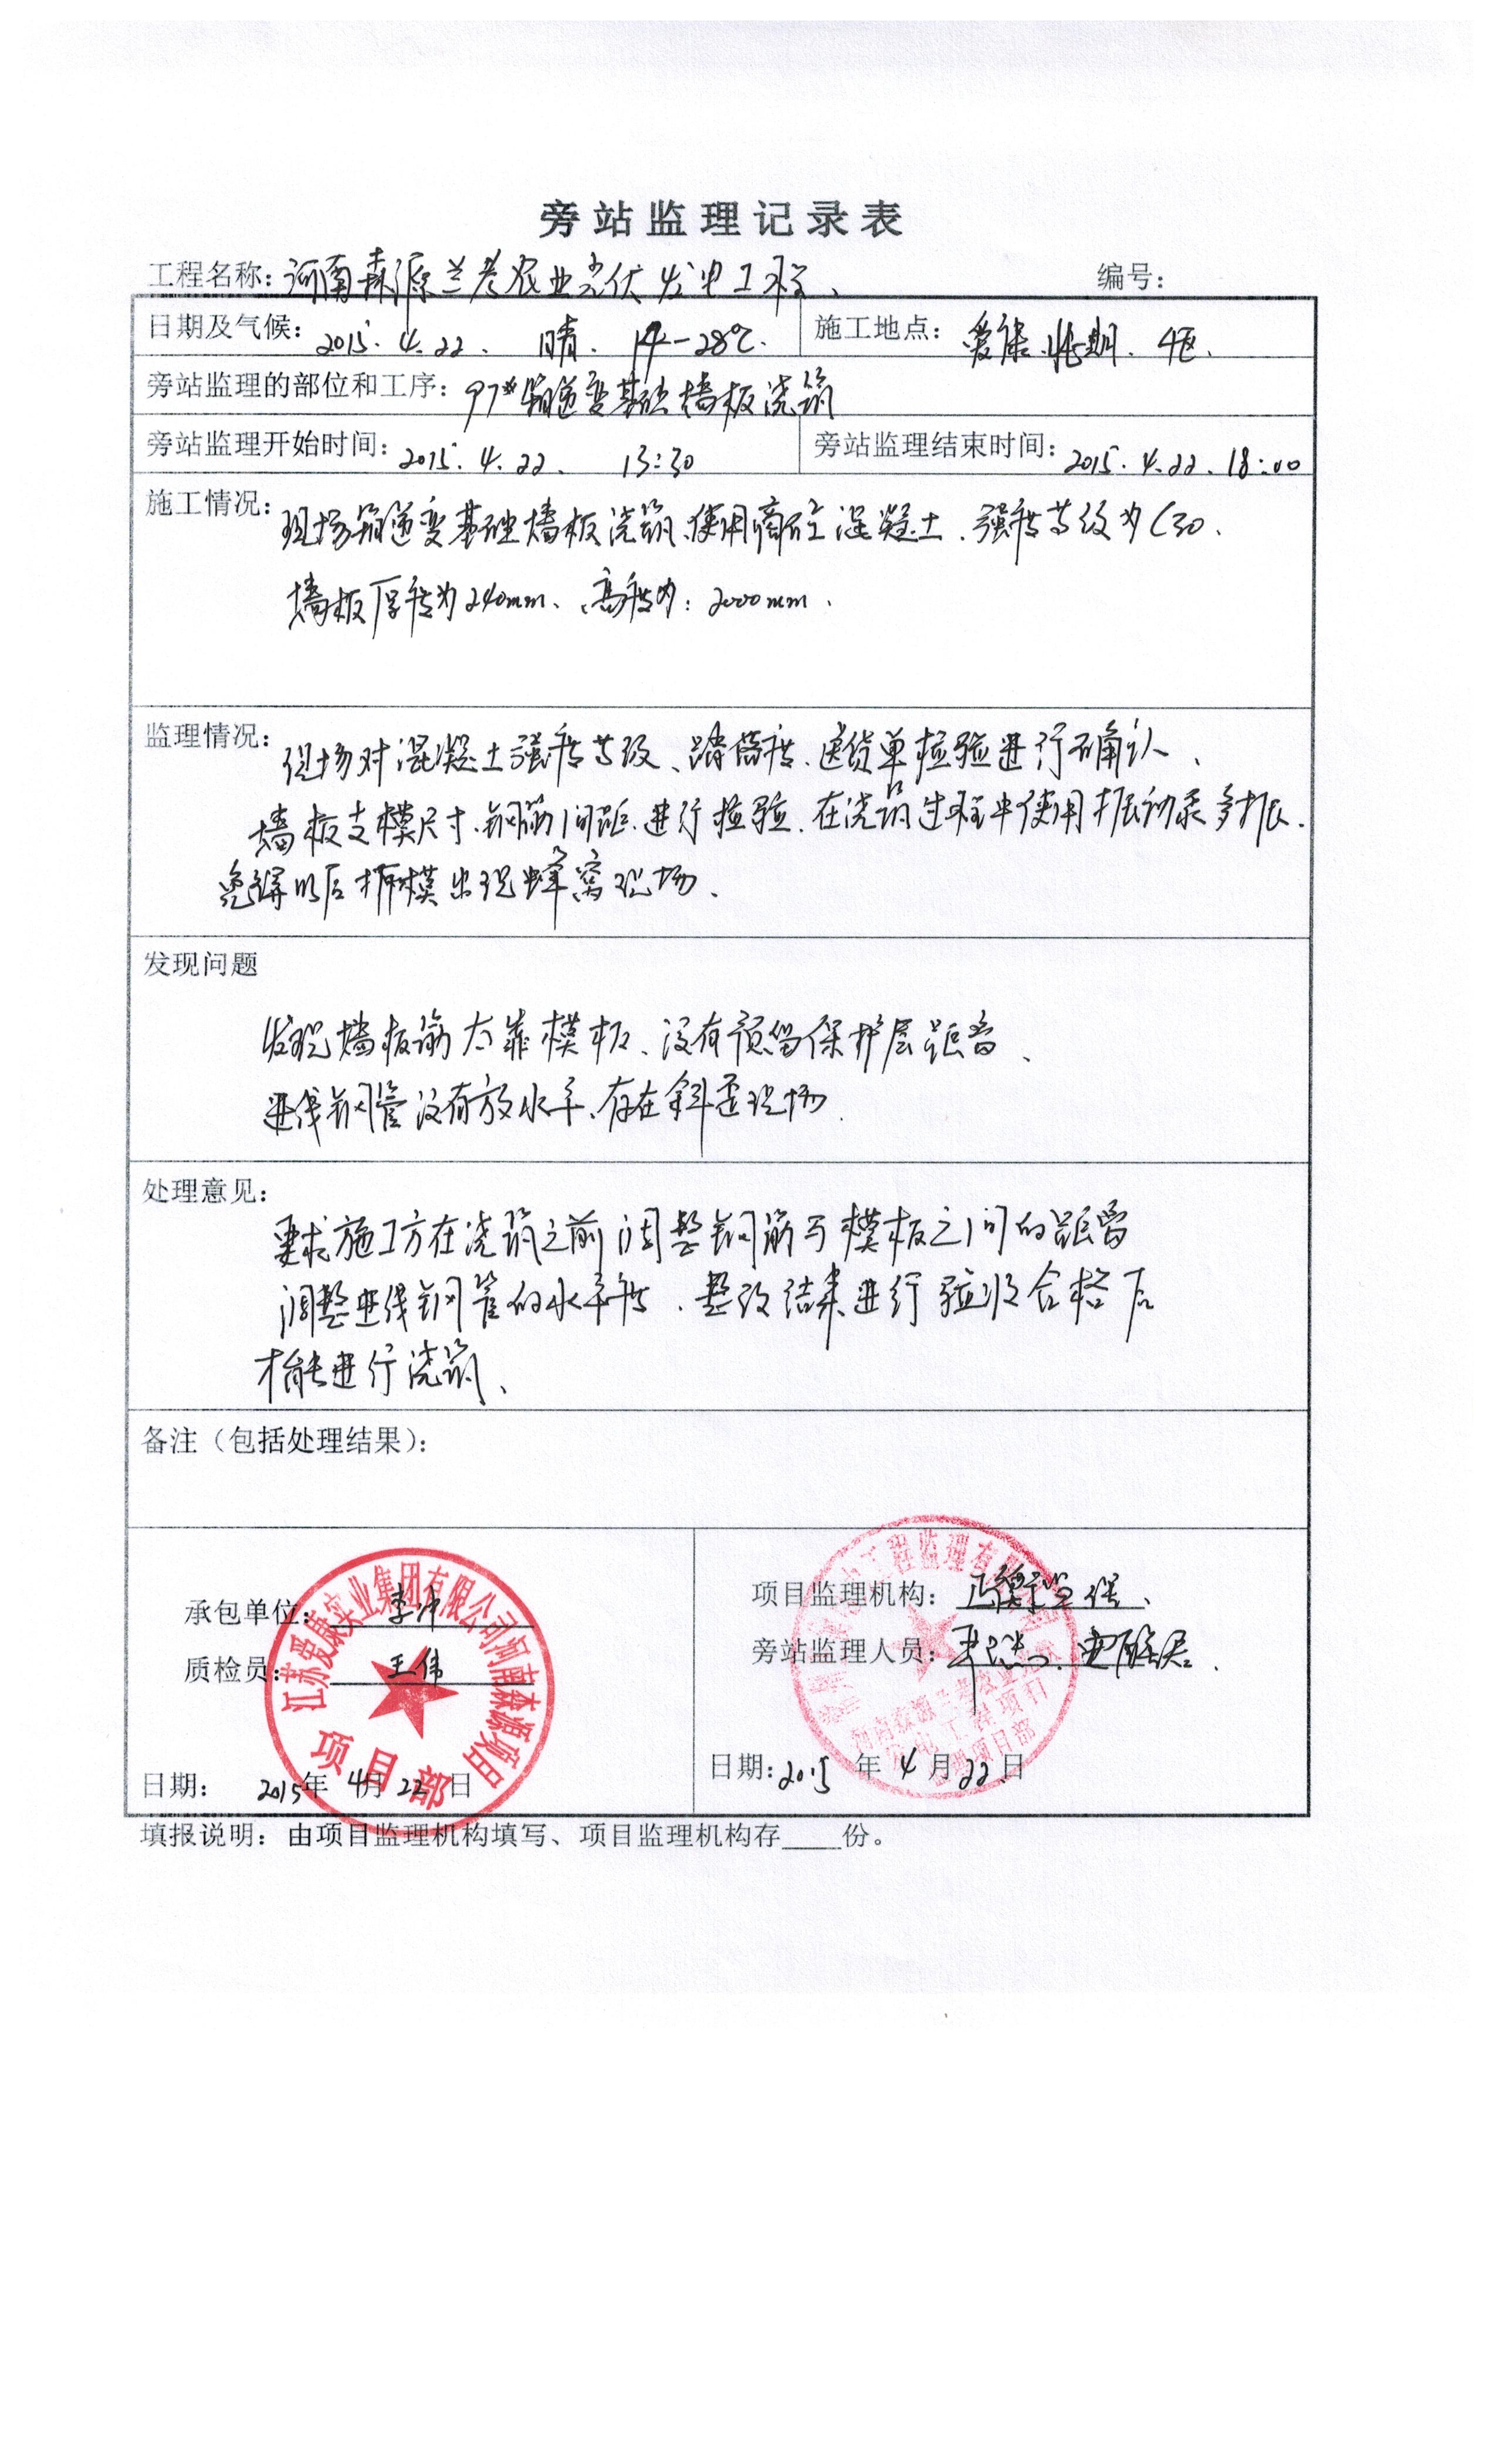 旁站监理记录表
工程名称：河南森源兰考农业光伏发电工程、
编号：
日期及气候：2015.4.22. 晴. 14-28℃.
施工地点：爱康 期. 4区.
旁站监理的部位和工序：97#箱逆变基础墙板浇筑
旁站监理开始时间：2015.4.22. 13:30
旁站监理结束时间：2015.4.22.18:00
施工情况：现场箱逆变基础墙板浇筑、使用商砼混凝土.强度等级为C30.
墙板厚度为240mm、高度为：2000mm.
监理情况：现场对混凝土强度等级、塌落度.送货单检验进行确认、
墙板支模尺寸.钢筋间距.进行检验.在浇筑过程中使用振动泵多振.
免得以后拆模出现蜂窝现场、
发现问题
发现墙板筋太靠模板、没有预留保护层距离、
进线钢管没有放水平、存在斜歪现场
处理意见：
要求施工方在浇筑之前调整钢筋与模板之间的距离
调整进线钢管的水平度.整改结果进行验收合格后
才能进行浇筑、
备注（包括处理结果）：
承包单位：李冲
质检员：王伟
日期：2015年4月22日
江苏爱康实业集团有限公司河南森源项目
项目部
项目监理机构：
旁站监理人员：
日期：2015年4月22日
工程监理有
河南森源兰考农业光
发电工程项目
项目部
填报说明：由项目监理机构填写、项目监理机构存____份。